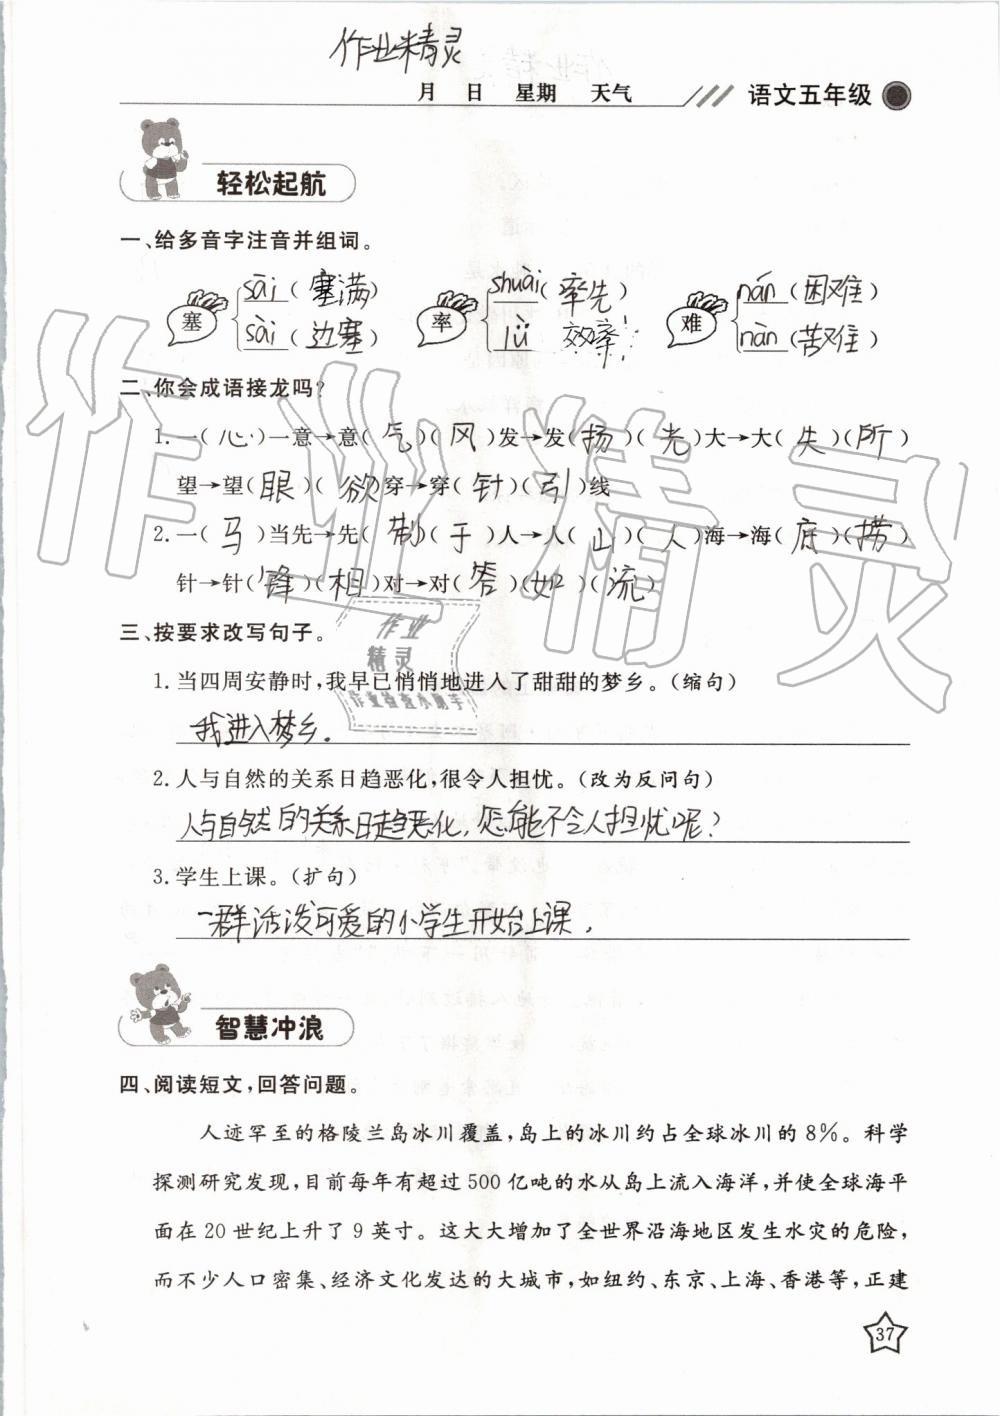 作业精灵
月 日 星期 天气 语文五年级
轻松起航
一、给多音字注音并组词。
塞 sāi(塞满) 率 shuài(率先) 难 nán(困难)
sài(边塞) lǜ 效率 nàn(苦难)
二、你会成语接龙吗?
1.一(心)一意→意(气)(风)发→发(扬)(光)大→大(失)(所)
望→望(眼)(欲)穿→穿(针)(引)线
2.一(马)当先→先(制)(于)人→人(山)(人)海→海(底)(捞)
针→针(锋)(相)对→对(答)(如)(流)
三、按要求改写句子。
1.当四周安静时,我早已悄悄地进入了甜甜的梦乡。(缩句)
我进入梦乡。
2.人与自然的关系日趋恶化,很令人担忧。(改为反问句)
人与自然的关系日趋恶化,怎能不令人担忧呢?
3.学生上课。(扩句)
一群活泼可爱的小学生开始上课。
智慧冲浪
四、阅读短文,回答问题。
人迹罕至的格陵兰岛冰川覆盖,岛上的冰川约占全球冰川的8%。科学
探测研究发现,目前每年有超过500亿吨的水从岛上流入海洋,并使全球海平
面在20世纪上升了9英寸。这大大增加了全世界沿海地区发生水灾的危险,
而不少人口密集、经济文化发达的大城市,如纽约、东京、上海、香港等,正建
37
作业精灵
作业
精灵
作业检查小助手